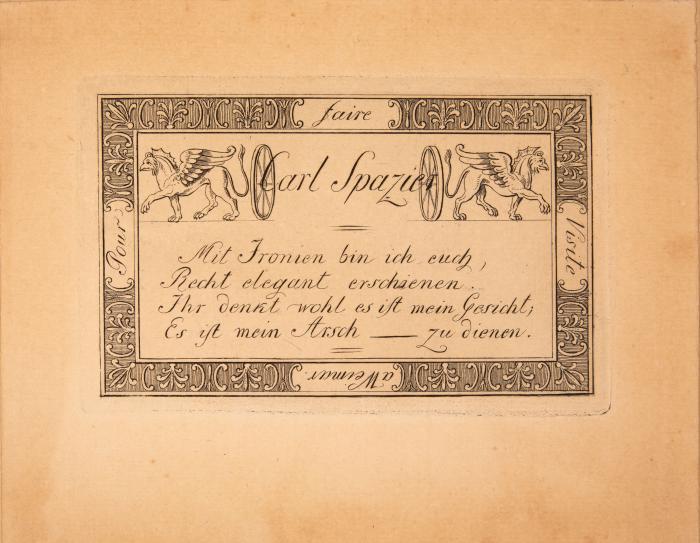 Pour
faire
Visite
a Weimar.
Carl Spazier
Mit Ironien bin ich euch,
Recht elegant erschienen.
Ihr denkt wohl es ist mein Gesicht;
Es ist mein Arsch — zu dienen.